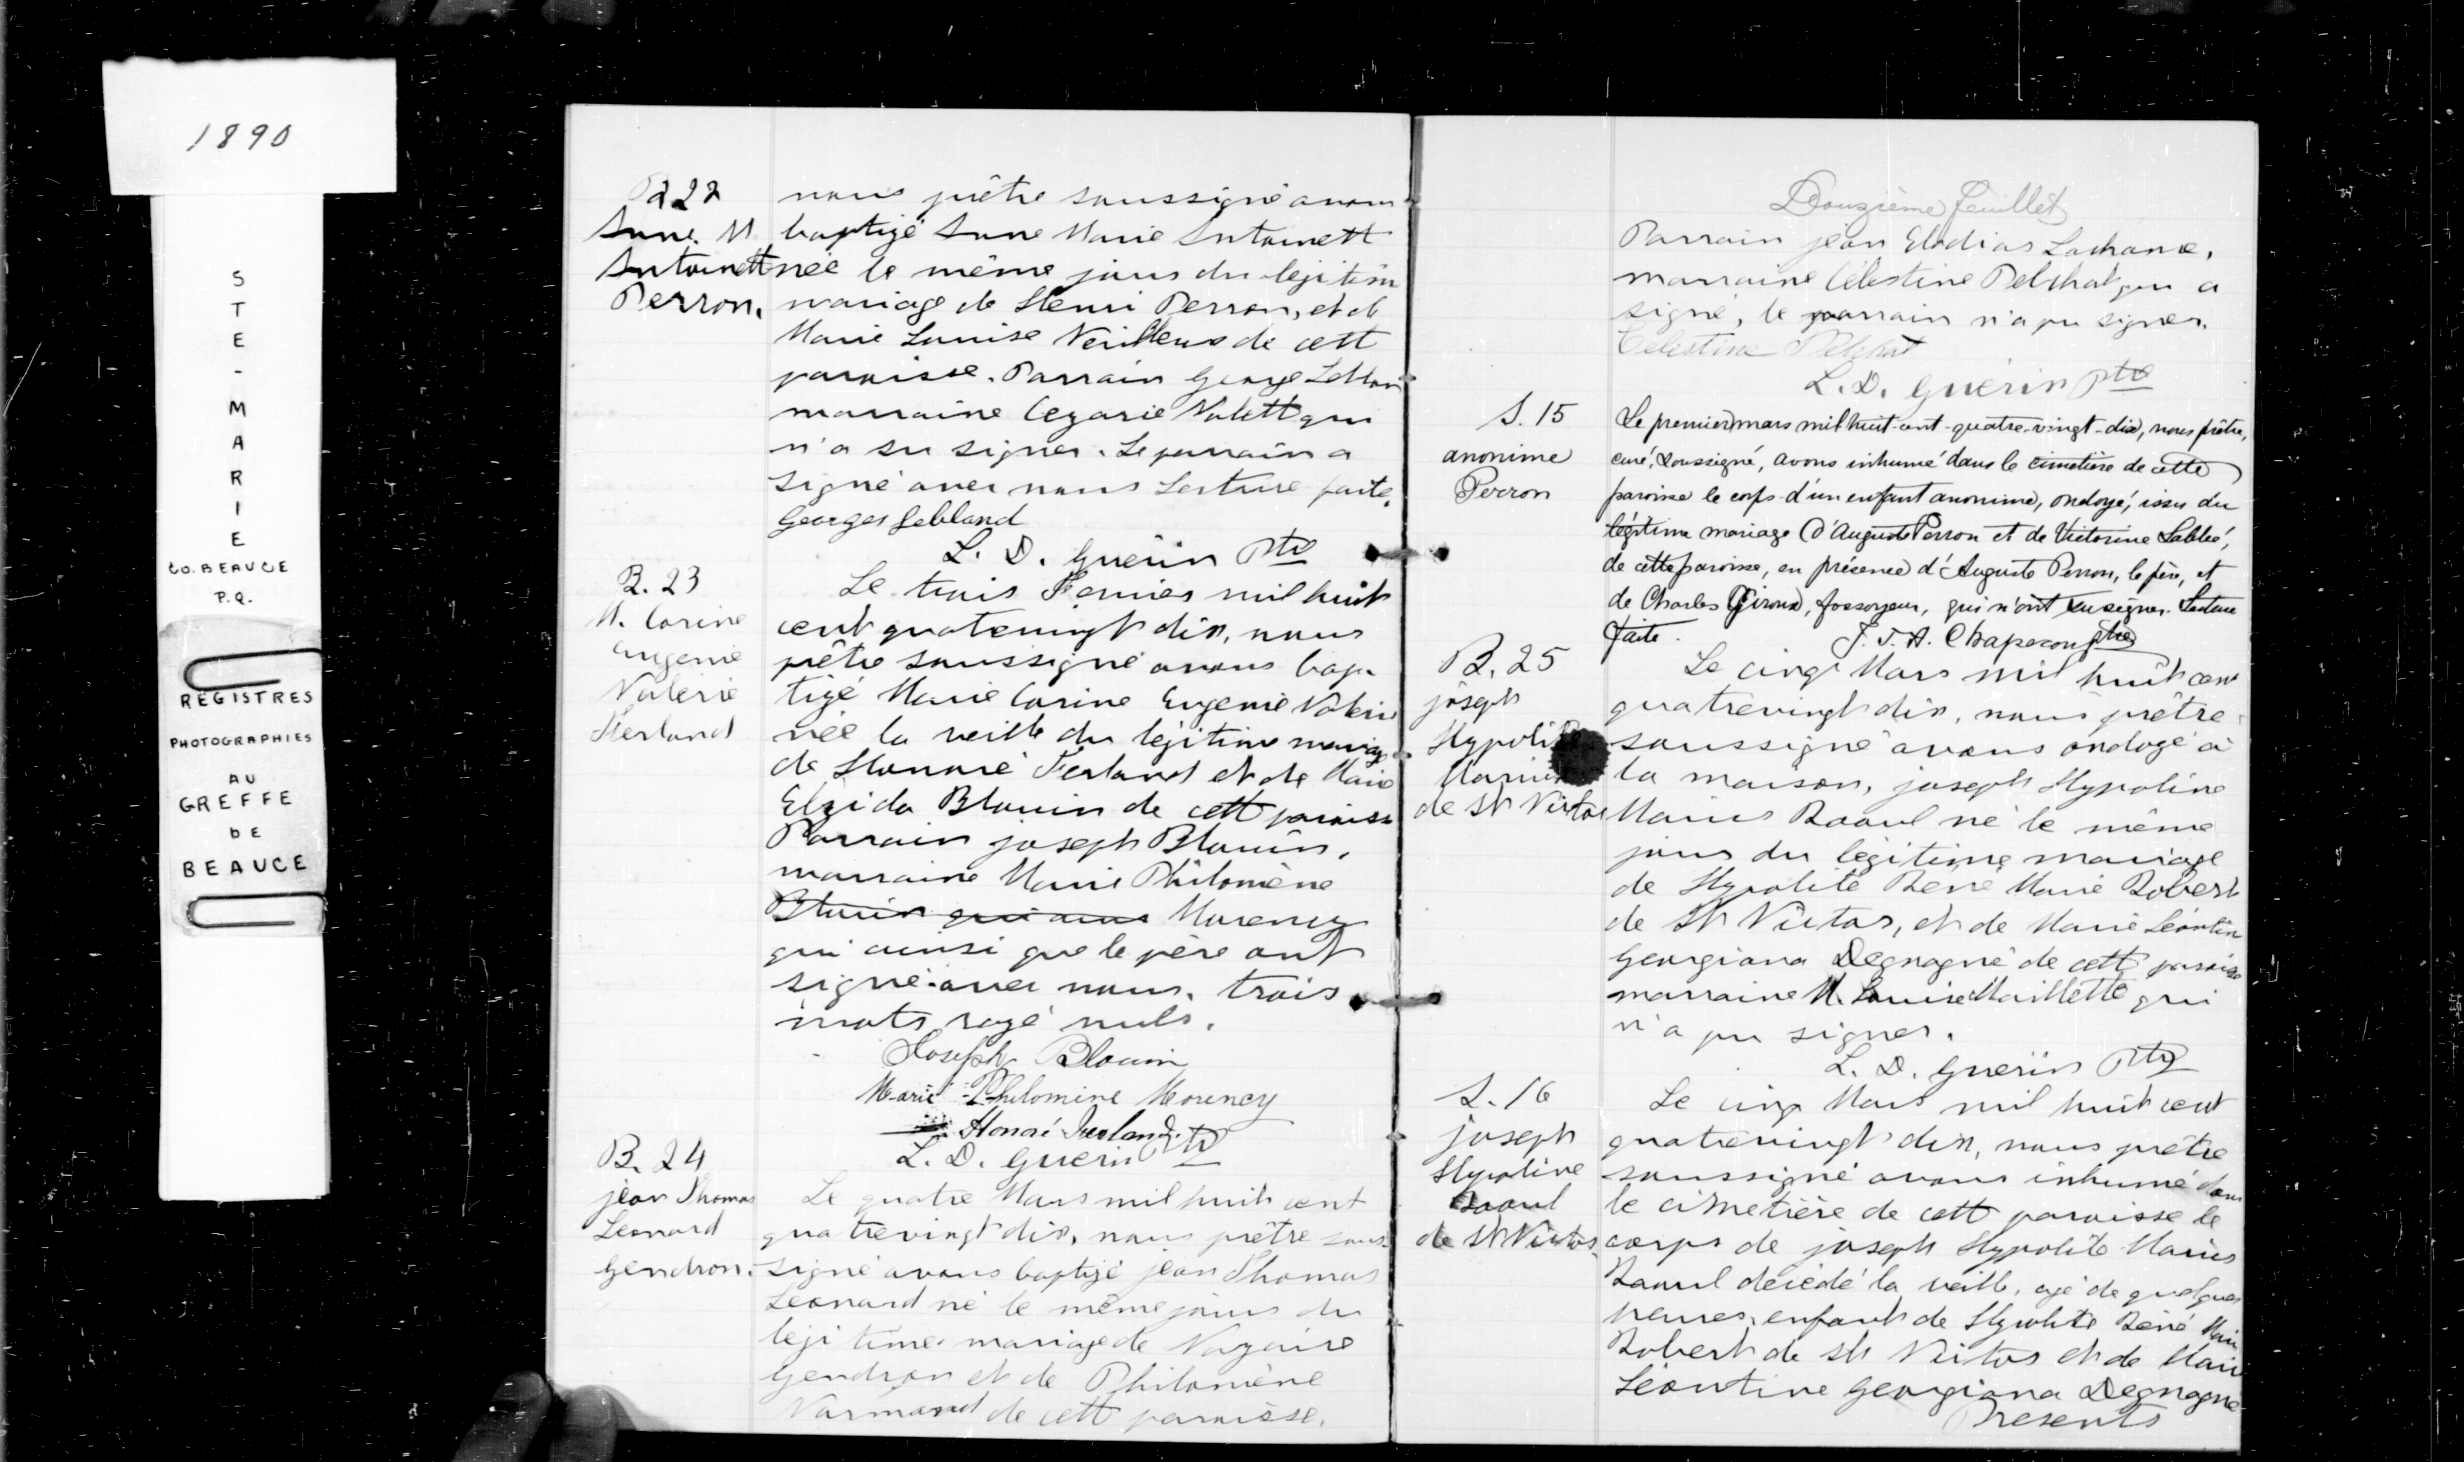 1890
STE-MARIE
CO. BEAUCE
P.Q.
REGISTRES
PHOTOGRAPHIES
AU
GREFFE
DE
BEAUCE
B 22
Anne. M
Antoinett
Perron.
nous prêtre soussigné avons
baptizé Anne Marie Antoinett
née le même jour du légitim
mariage de Henri Perron, et de
Marie Louise Veilleux de cett
paroisse. Parrain George Leblan
marraine Cezarie Nolett qui
n'a su signer. Le parrain a
signé avec nous Lecture faite.
Georges Lebland
L. D. Guérin Ptre
B. 23
M. Corine
Eugenie
Valérie
Ferland
Le trois Fevrier mil huit
cent quatrevingt dix, nous
prêtre soussigné avons bap-
tizé Marie Corine Eugenie Valerie
née la veille du légitime mariage
de Honoré Ferland et de Marie
Elzida Blouin de cett paroisse
Parrain joseph Blouin,
marraine Marie Philomène
Blouin qui avec Morency
qui ainsi que le père ont
signé avec nous. trois
mots rayé nuls.
Joseph Blouin
Marie Philomine Morency
Honoré Ferland
L. D. Guerin Ptr
B. 24
jean Thomas
Leonard
Gendron.
Le quatre Mars mil huit cent
quatrevingt dix, nous prêtre sous-
signé avons baptizé jean Thomas
Leonard né le même jour du
légitime mariage de Nazaire
Gendron et de Philomène
Normand de cett paroisse.
Douzième feuillet
Parrain jean Elodias Lachance,
marraine Célestine Pelchat qui a
signé, le parrain n'a pu signer.
Celestine Pelchat
L. D. Guérin Ptre
S. 15
anonime
Perron
Le premier mars mil huit-cent-quatre-vingt-dix, nous prêtre,
curé, soussigné, avons inhumé dans le cimetière de cette
paroisse le corps d'un enfant anonime, ondoyé, issu du
légitime mariage d'Auguste Perron et de Victorine Labbé,
de cette paroisse, en présence d'Auguste Perron, le père, et
de Charles Giroux, fossoyeur, qui n'ont su signer. Lecture
faite.
J. T. A. Chaperon ptre
B. 25
joseph
Hypolit
Marius
de St Victor
Le cinq Mars mil huit cent
quatrevingt dix, nous prêtre
soussigné avons ondoyé à
la maison, joseph Hypoline
Marius Raoul né le même
jour du légitime mariage
de Hypolite René Marie Robert
de St Victor, et de Marie Léontin
Georgiana Degnagné de cett paroisse
marraine M. Louise Maillette qui
n'a pu signer.
L. D. Guérin Ptr
S. 16
joseph
Hypoline
Raoul
de St Victor
Le cinq Mars mil huit cent
quatrevingt dix, nous prêtre
soussigné avons inhumé dans
le cimetière de cett paroisse le
corps de joseph Hypolite Marius
Raoul décédé la veille, agé de quelques
heures, enfant de Hypolite René Marie
Robert de St Victor et de Marie
Léontine Georgiana Degnagné
Presents